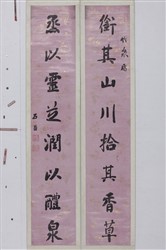 銜其山川拾其香草
烝以靈芝潤以醴泉